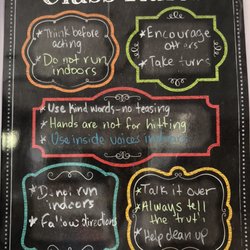 Think before
acting
Do not run
indoors
Encourage
others
Take turns
Use kind words-no teasing
Hands are not for hitting
Use inside voices indoors
Do not run
indoors
Follow directions
Talk it over
Always tell
the truth
Help clean up